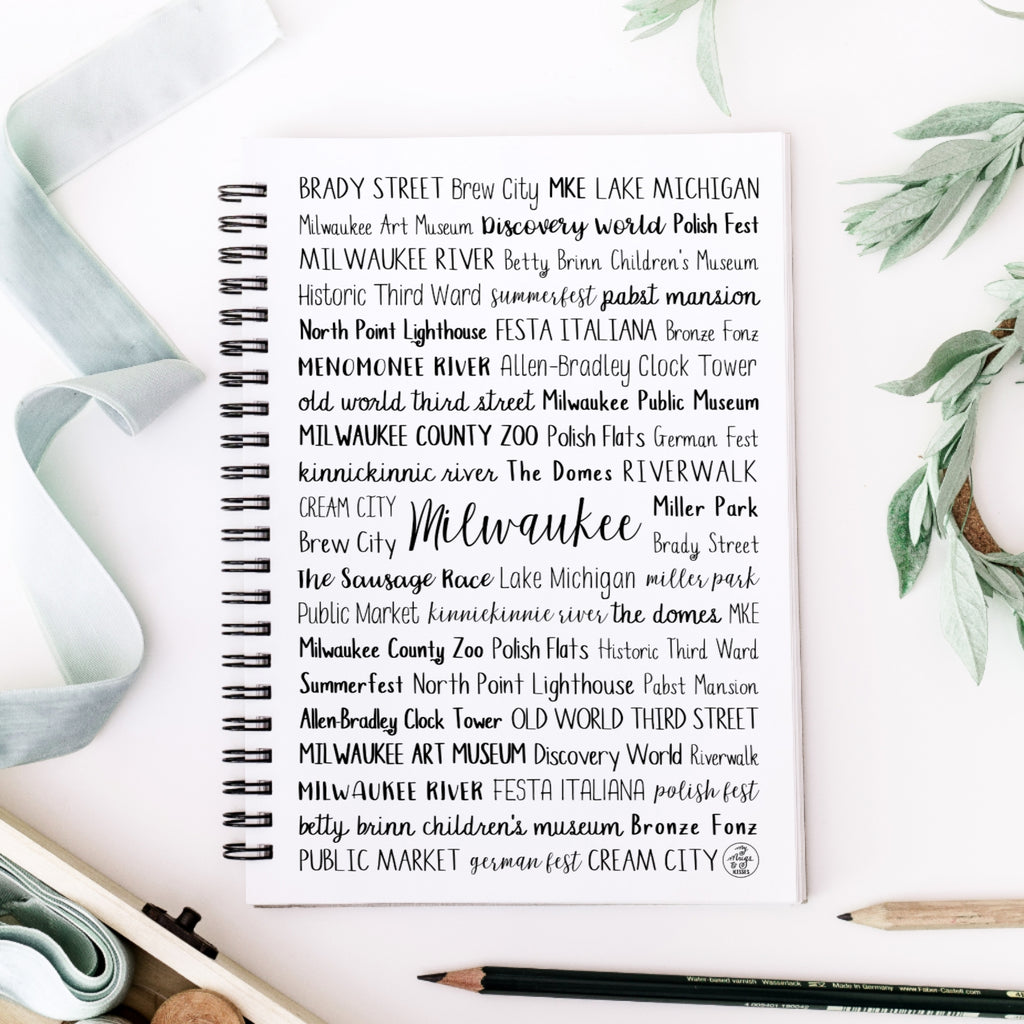 BRADY STREET Brew City MKE LAKE MICHIGAN
Milwaukee Art Museum Discovery World Polish Fest
MILWAUKEE RIVER Betty Brinn Children's Museum
Historic Third Ward summerfest pabst mansion
North Point Lighthouse FESTA ITALIANA Bronze Fonz
MENOMONEE RIVER Allen-Bradley Clock Tower
old world third street Milwaukee Public Museum
MILWAUKEE COUNTY ZOO Polish Flats German Fest
kinnickinnic river The Domes RIVERWALK
CREAM CITY
Brew City
Milwaukee
Miller Park
Brady Street
The Sausage Race Lake Michigan miller park
Public Market kinnickinnic river the domes MKE
Milwaukee County Zoo Polish Flats Historic Third Ward
Summerfest North Point Lighthouse Pabst Mansion
Allen-Bradley Clock Tower OLD WORLD THIRD STREET
MILWAUKEE ART MUSEUM Discovery World Riverwalk
MILWAUKEE RIVER FESTA ITALIANA polish fest
betty brinn children's museum Bronze Fonz
PUBLIC MARKET german fest CREAM CITY
KISSES
Water-based varnish Wasserlack Made in Germany www.Faber-Castell.com